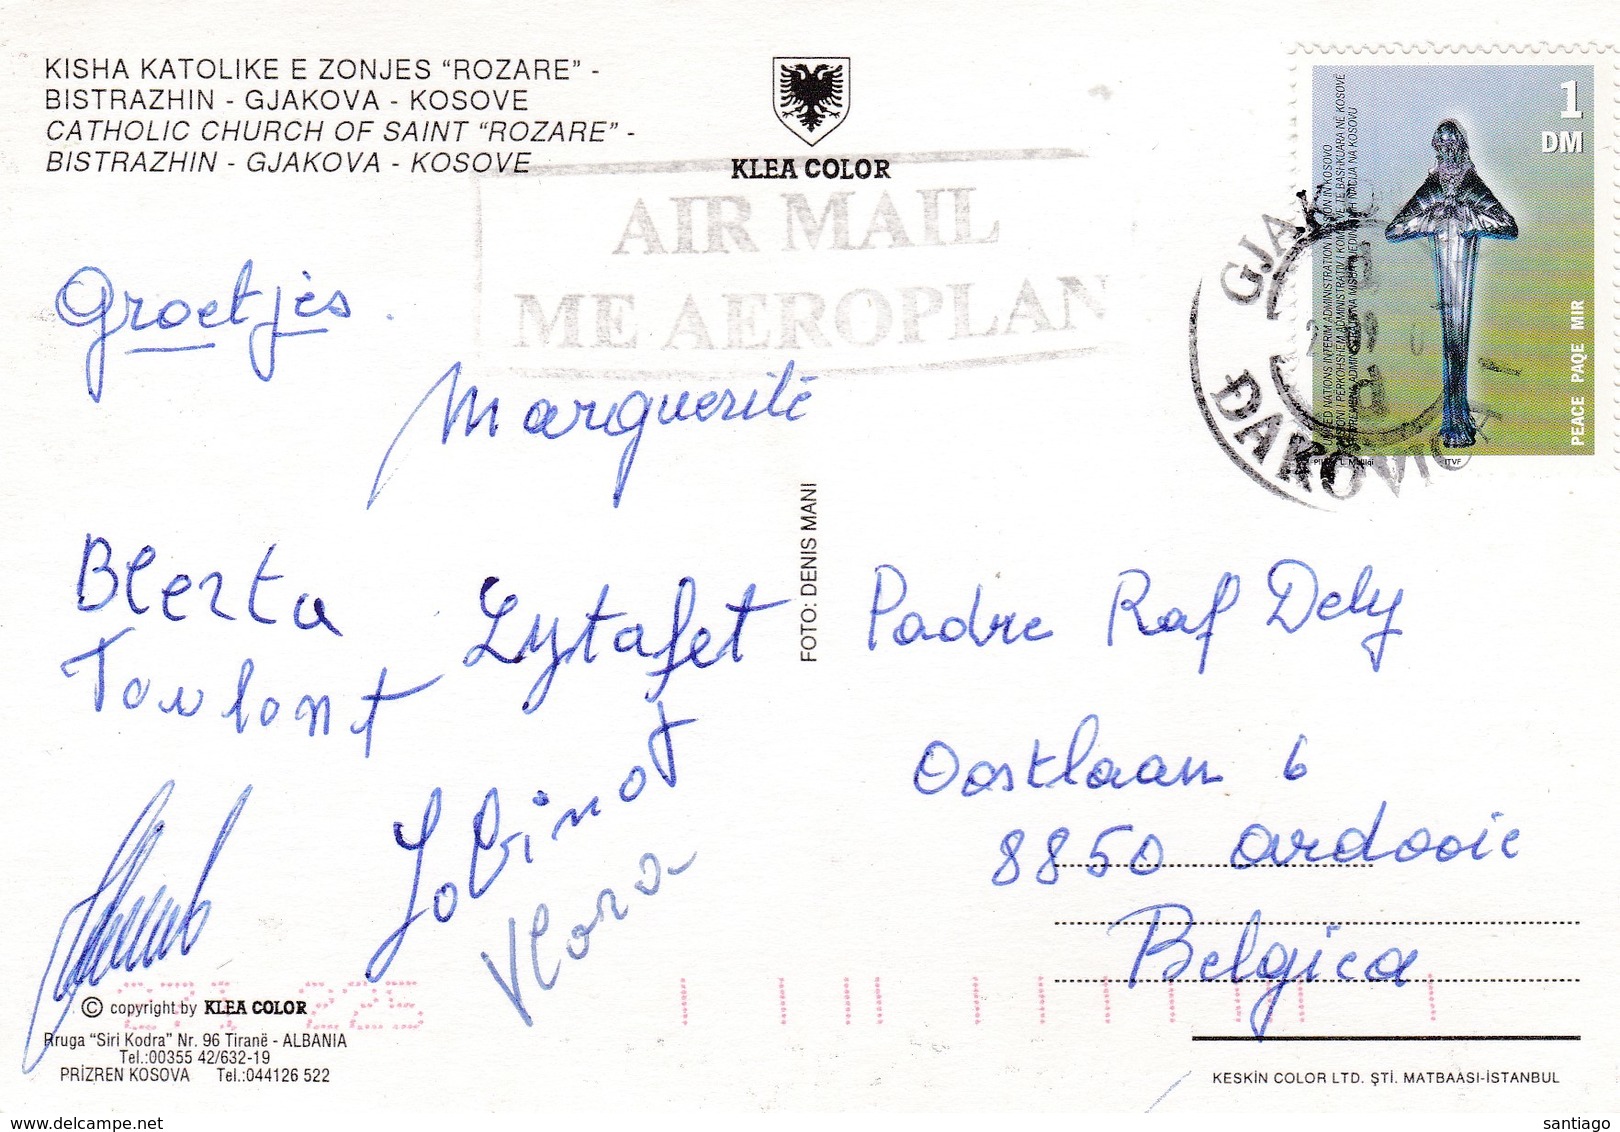 KISHA KATOLIKE E ZONJES “ROZARE” -
BISTRAZHIN - GJAKOVA - KOSOVE
CATHOLIC CHURCH OF SAINT “ROZARE” -
BISTRAZHIN - GJAKOVA - KOSOVE
KLEA COLOR
AIR MAIL
ME AEROPLAN
1
DM
PEACE PAQE MIR
UNITED NATIONS INTERIM ADMINISTRATION MISSION IN KOSOVO
ITVF
GJAK
ĐAKOVICA
Groetjes.
Marguerite
Blerta
Toulont
FOTO: DENIS MANI
Padre Raf Dely
Oostlaan 6
8850 Ardooie
Belgica
Vlora
© copyright by KLEA COLOR
Rruga “Siri Kodra” Nr. 96 Tiranë - ALBANIA
Tel.:00355 42/632-19
PRİZREN KOSOVA Tel.:044126 522
KESKİN COLOR LTD. ŞTİ. MATBAASI-İSTANBUL
santiago